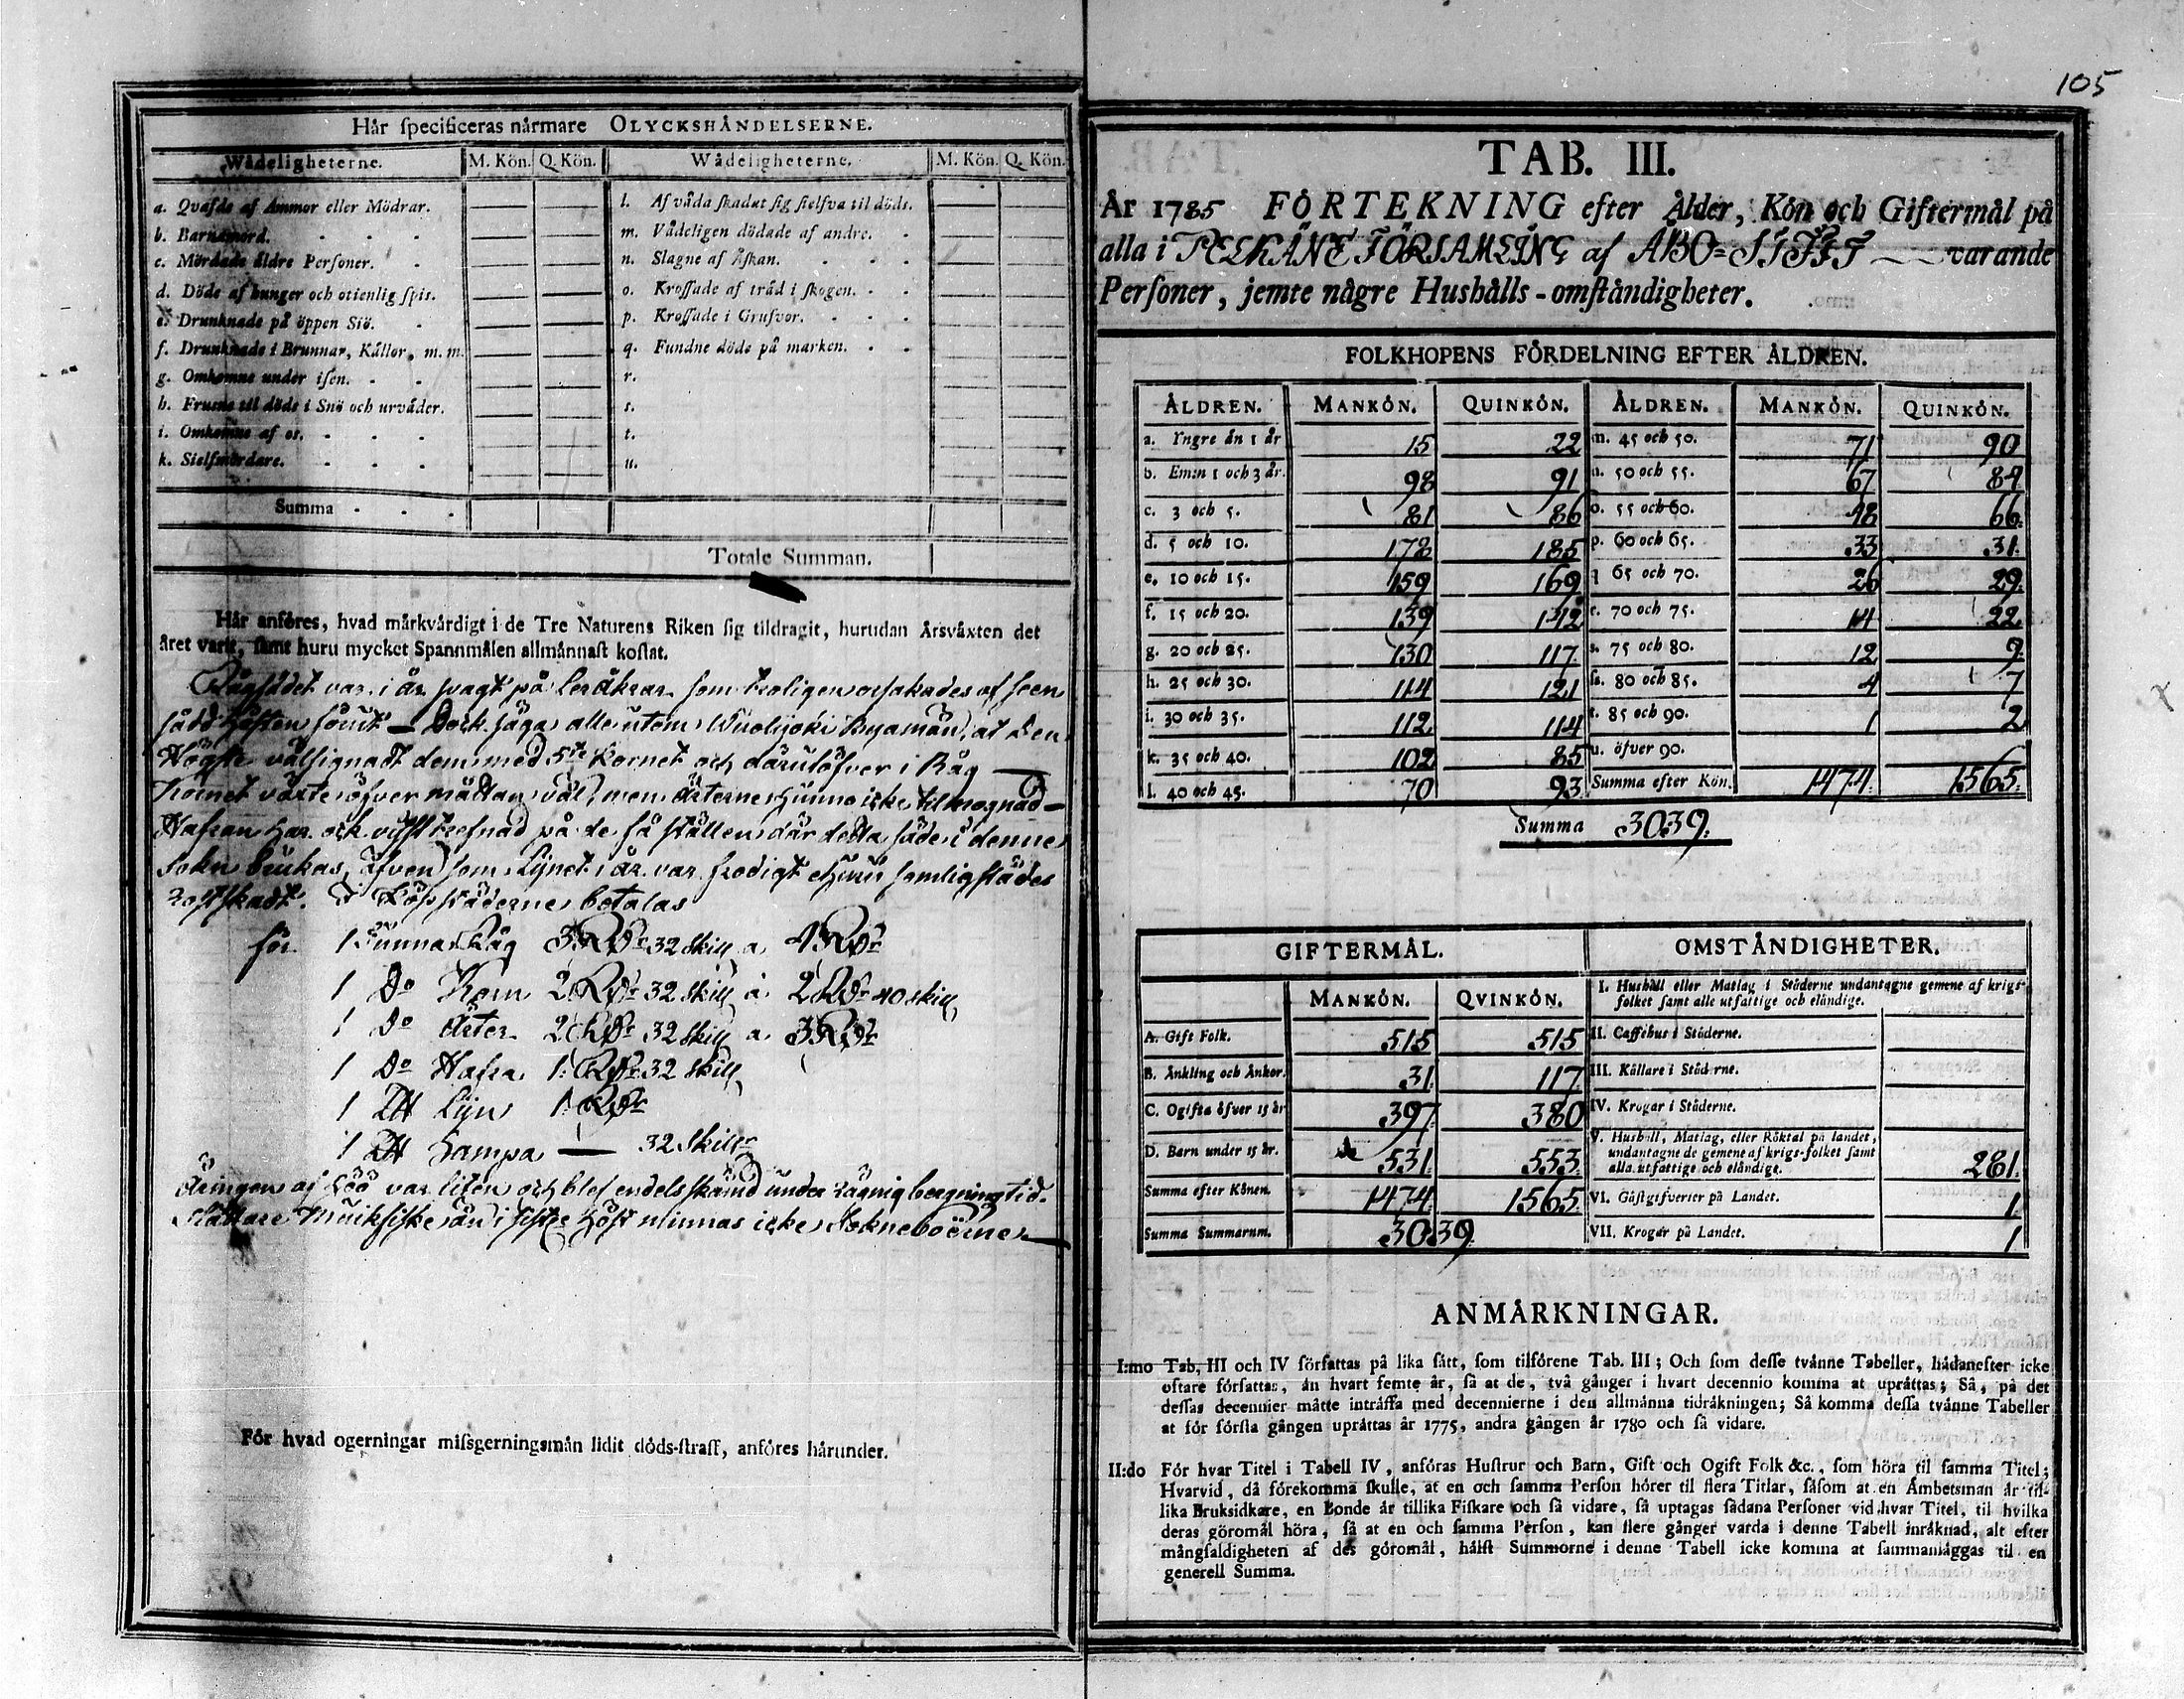 105
Hår specificeras nårmare OLYCKSHÅNDELSERNE.
Wådeligheterne. M. Kön. Q. Kön. Wådeligheterne. M. Kön. Q. Kön.
a. Qvafde af Ammor eller Mödrar. — — l. Af våda skadat sig sielfva til döds. — —
b. Barnamord. — — m. Vådeligen dödade af andre. — —
c. Mördade äldre Personer. — — n. Slagne af Åskan. — —
d. Döde af hunger och otienlig spis. — — o. Krossade af tråd i skogen. — —
e. Drunknade på öppen Siö. — — p. Krossade i Grufvor. — —
f. Drunknade i Brunnar, Kållor, m. m. — — q. Fundne döde på marken. — —
g. Omkomne under isen. — — r. — —
h. Frusne til döds i Snö och urvåder. — — s. — —
i. Omkomne af os. — — t. — —
k. Sielfmördare. — — u. — —
Summa
Totale Summan.
Hår anföres, hvad mårkvårdigt i de Tre Naturens Riken sig tildragit, hurudan Årsvåxten det
året varit, samt huru mycket Spannmålen allmånnast kostat.
Rågsådet var i år svagt på leråkrar som troligen orsakades af seen
sådd hösten förut — Dock säga alle utom Wuolijoki Byamän, at Den
Högste välsignadt dem med 5te kornet och därutöfver i Råg —
Kornet växte öfver måttan väl, men Ärterne hunno icke til mognad —
Hafran har ock vist trefnad på de få ställen där detta säde i denne
Sokn brukas, äfven som Lijnet i år var frodigt ehuru somligstädes
rostskadt. I Köpstäderne betalas
för 1 Tunna Råg 3 Rdr 32 skill a 4 Rdr
1 Do Korn 2 Rdr 32 skill a 2 Rdr 40 skill
1 Do Ärter 2 Rdr 32 skill a 3 Rdr
1 Do Hafra 1 Rdr 32 skill
1 LH Lijn 1 Rdr
1 LH Hampa — 32 Skillr
Äringen af Höö var liten och blef endels skämd under rägnig bergningstid.
Muikfiske än i sistre höst minnas icke Sokneboerne —
För hvad ogerningar missgerningsmån lidit döds-straff, anföres hårunder.
TAB. III.
År 1785 FÖRTEKNING efter Ålder, Kön och Giftermål på
alla i PELKÄNE FÖRSAMLING af ÅBO-STIFT — varande
Personer, jemte någre Hushålls-omståndigheter.
FOLKHOPENS FÖRDELNING EFTER ÅLDREN.
ÅLDREN. MANKÖN. QUINKÖN. ÅLDREN. MANKÖN. QUINKÖN.
a. Yngre ån 1 år 15 22 m. 45 och 50. 71 90
b. Emm 1 och 3 år. 98 91 n. 50 och 55. 67 84
c. 3 och 5. 81 86 o. 55 och 60. 48 66
d. 5 och 10. 178 185 p. 60 och 65. 33 31
e. 10 och 15. 159 169 q 65 och 70. 26 29
f. 15 och 20. 139 142 r. 70 och 75. 14 22
g. 20 och 25. 130 117 s. 75 och 80. 12 9
h. 25 och 30. 114 121 ss. 80 och 85. 4 7
i. 30 och 35. 112 114 t. 85 och 90. 1 2
k. 35 och 40. 102 85 u. öfver 90.
l. 40 och 45. 70 93 Summa efter Kön. 1474 1565
Summa 3039.
GIFTERMÅL. OMSTÅNDIGHETER.
MANKÖN. QVINKÖN. I. Hushåll eller Matlag i Stöderne undantagne gemene af krigs-
folket samt alle utfattige och elåndige.
A. Gift Folk. 515 515 II. Caffehus i Stöderne.
B. Ånkling och Ånkor. 31 117 III. Kållare i Stöderne.
C. Ogifta öfver 15 år 397 380 IV. Krogar i Stöderne.
D. Barn under 15 år. 531 553 V. Hushåll, Matlag, eller Röktal på landet,
undantagne de gemene af krigs-folket samt
alla utfattige och elåndige. 281
Summa efter Könen. 1474 1565 VI. Gåstgifverier på Landet. 1
Summa Summarum. 3039 VII. Krogar på Landet. 1
ANMÅRKNINGAR.
I:mo Tab, III och IV författas på lika sått, som tilförene Tab. III; Och som desse tvånne Tabeller, hådanefter icke
oftare författas, ån hvart femte år, så at de, två gånger i hvart decennio komma at upråttas; Så, på det
dessas decennier måtte intråffa med decennierne i den allmånna tidråkningen; Så komma dessa tvånne Tabeller
at för förfsta gången upråttas år 1775, andra gången år 1780 och så vidare.
II:do För hvar Titel i Tabell IV, anföras Hustrur och Barn, Gift och Ogift Folk &c., som höra til samma Titel;
Hvarvid, då förekomma skulle, at en och samma Person hörer til flera Titlar, såsom at en Åmbetsman år til-
lika Bruksidkare, en Bonde år tillika Fiskare och så vidare, så uptagas sådana Personer vid hvar Titel, til hvilka
deras göromål höra, så at en och samma Person, kan flere gånger varda i denne Tabell inråknad, alt efter
mångfaldigheten af des göromål, hålst Summorne i denne Tabell icke komma at sammanlåggas til en
generell Summa.